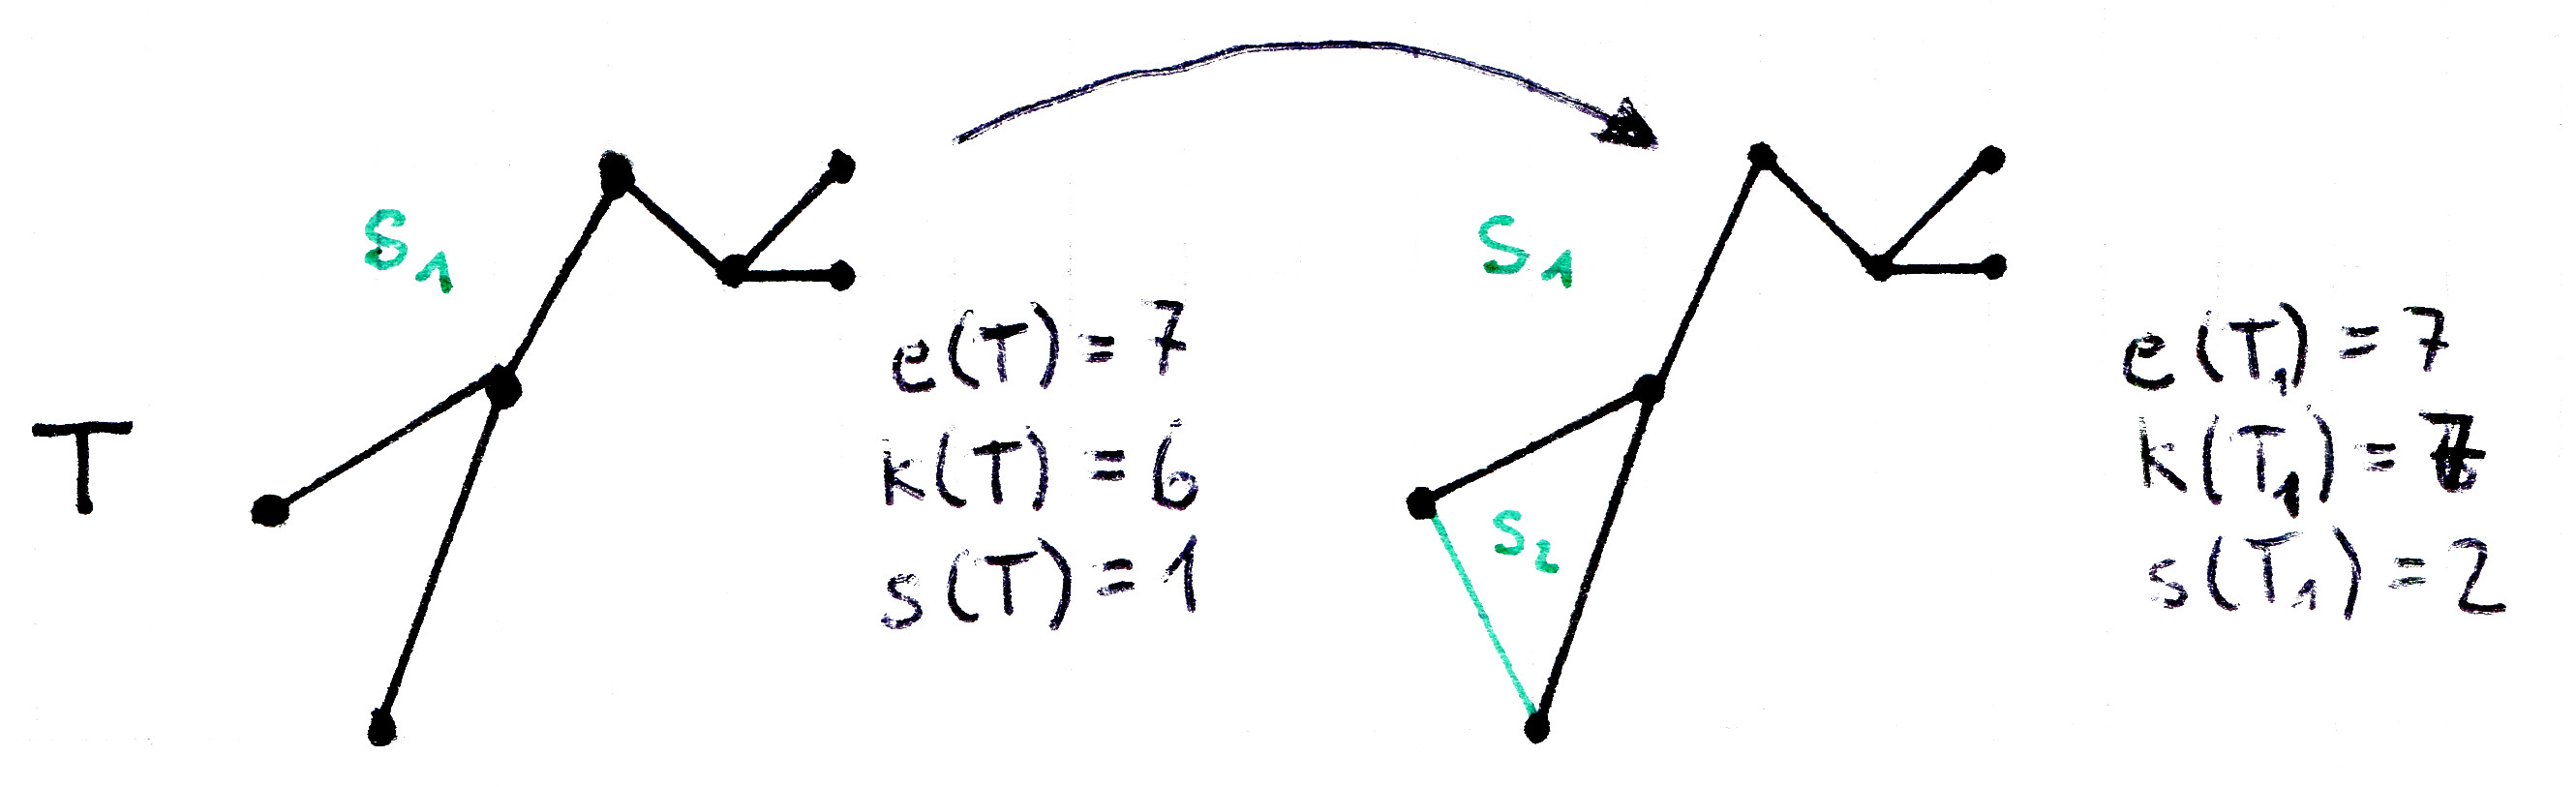 T
S₁
e(T) = 7
k(T) = 6
s(T) = 1
S₁
S₂
e(T₁) = 7
k(T₁) = 7
s(T₁) = 2